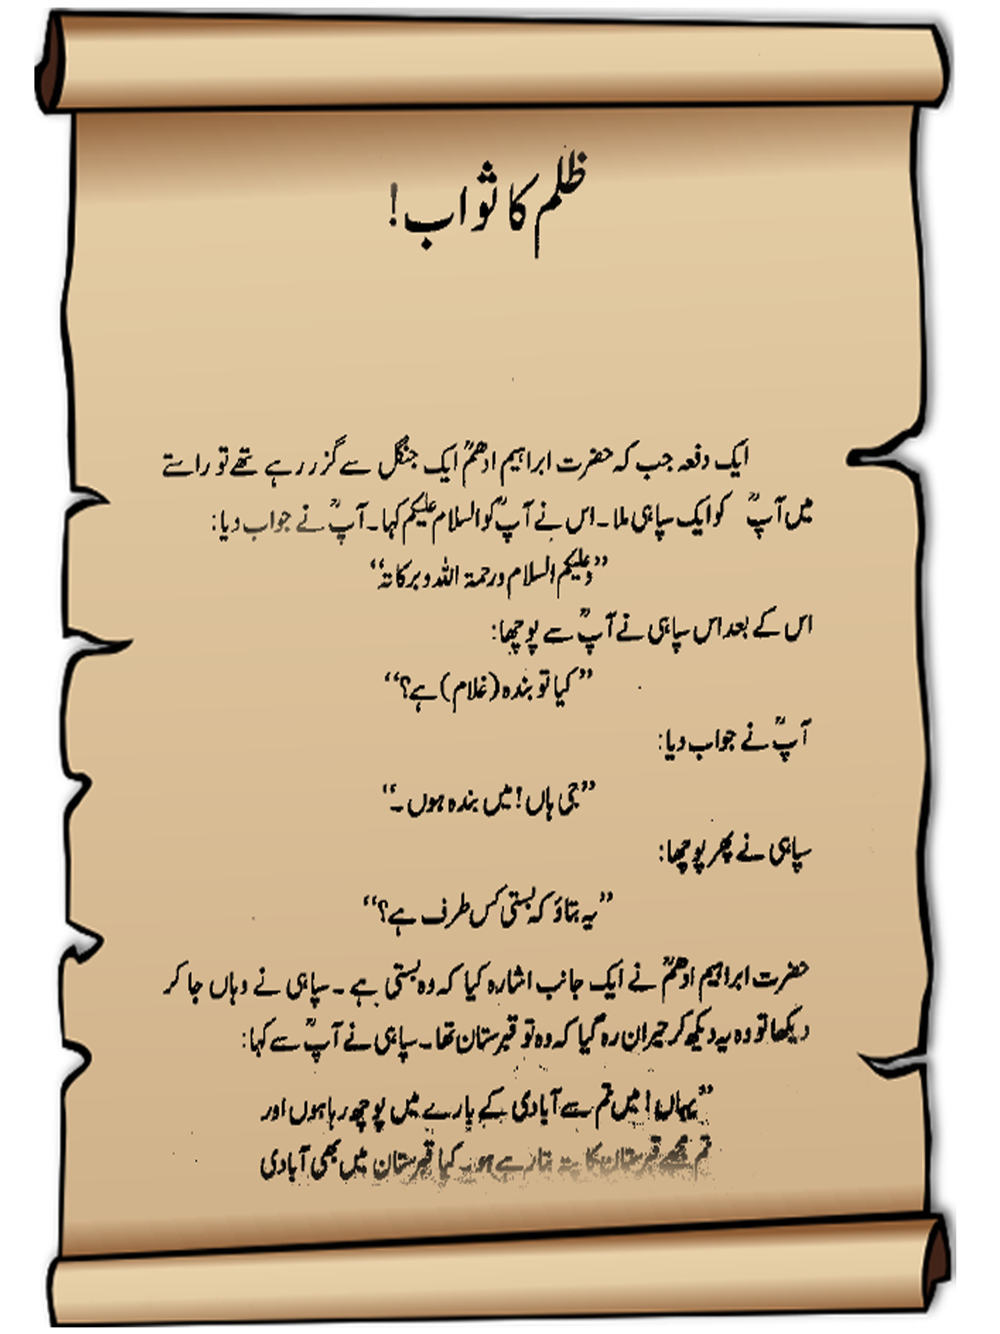 ظلم کا ثواب!
ایک دفعہ جب کہ حضرت ابراہیم ادھمؒ ایک جنگل سے گزر رہے تھے تو راستے
میں آپؒ کو ایک سپاہی ملا۔ اس نے آپؒ کو السلام علیکم کہا۔ آپؒ نے جواب دیا:
”وعلیکم السلام ورحمۃ اللہ وبرکاتہ“
اس کے بعد اس سپاہی نے آپؒ سے پوچھا:
”کیا تو بندہ (غلام) ہے؟“
آپؒ نے جواب دیا:
”جی ہاں! میں بندہ ہوں۔“
سپاہی نے پھر پوچھا:
”یہ بتاؤ کہ بستی کس طرف ہے؟“
حضرت ابراہیم ادھمؒ نے ایک جانب اشارہ کیا کہ وہ بستی ہے۔ سپاہی نے وہاں جا کر
دیکھا تو وہ یہ دیکھ کر حیران رہ گیا کہ وہ تو قبرستان تھا۔ سپاہی نے آپؒ سے کہا:
”یہاں! میں تم سے آبادی کے بارے میں پوچھ رہا ہوں اور
تم مجھے قبرستان کا پتہ بتا رہے ہو۔ کیا قبرستان میں بھی آبادی